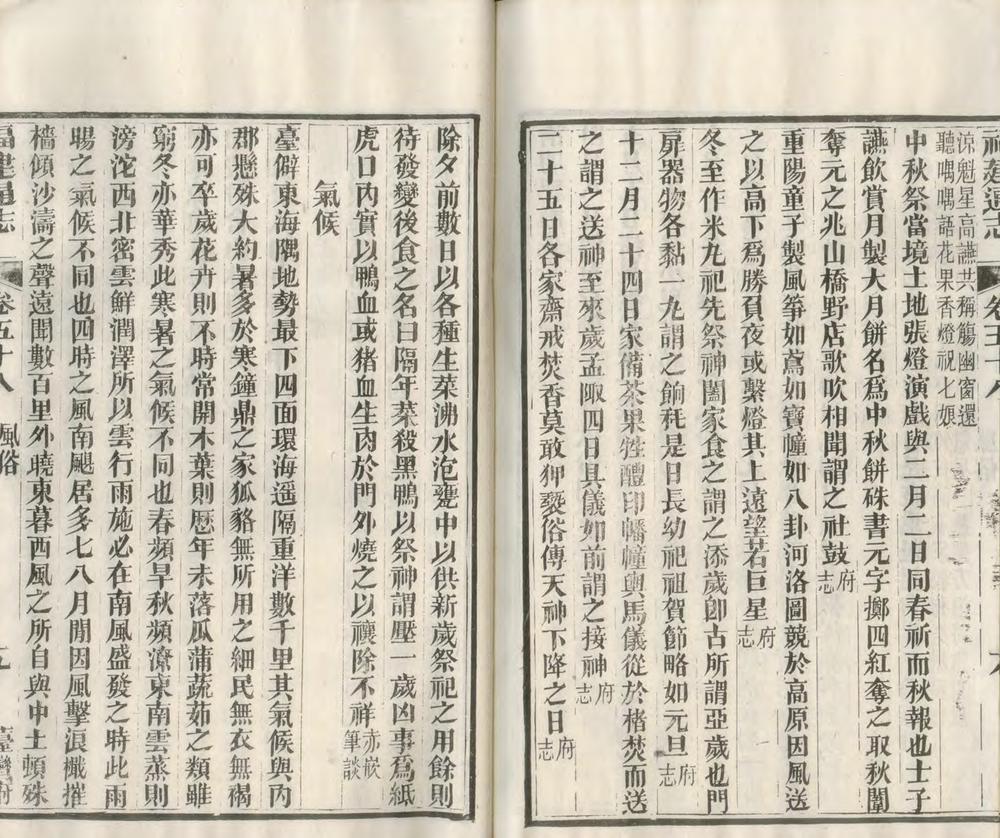 福建通志 卷五十八
涼魁星高讌共稱觴幽窗還
聽喁喁語花果香燈祝七娘
中秋祭當境土地張燈演戲與二月二日同春祈而秋報也士子
讌飲賞月製大月餅名為中秋餅硃書元字擲四紅奪之取秋闈
奪元之兆山橋野店歌吹相聞謂之社鼓府志
重陽童子製風箏如鳶如寶幢如八卦河洛圖競於高原因風送
之以高下為勝負夜或繫燈其上遠望若巨星府志
冬至作米丸祀先祭神闔家食之謂之添歲卽古所謂亞歲也門
扉器物各黏一丸謂之餉耗是日長幼祀祖賀節略如元旦府志
十二月二十四日家備茶果牲醴印幡幢輿馬儀從於楮焚而送
之謂之送神至來歲孟陬四日具儀如前謂之接神府志
二十五日各家齋戒焚香莫敢狎褻俗傳天神下降之日府志
除夕前數日以各種生菜沸水泡甕中以供新歲祭祀之用餘則
待發變後食之名曰隔年菜殺黑鴨以祭神謂壓一歲凶事為紙
虎口內實以鴨血或猪血生肉於門外燒之以禳除不祥赤嵌筆談
氣候
臺僻東海隅地勢最下四面環海遥隔重洋數千里其氣候與內
郡懸殊大約暑多於寒鐘鼎之家狐貉無所用之細民無衣無褐
亦可卒歲花卉則不時常開木葉則歷年未落瓜蒲蔬茹之類雖
窮冬亦華秀此寒暑之氣候不同也春頻旱秋頻潦東南雲蒸則
滂沱西北密雲鮮潤澤所以雲行雨施必在南風盛發之時此雨
暘之氣候不同也四時之風南颸居多七八月間因風擊浪檝摧
檣傾沙濤之聲遠聞數百里外曉東暮西風之所自與中土頓殊
福建通志 卷五十八 風俗 臺灣府